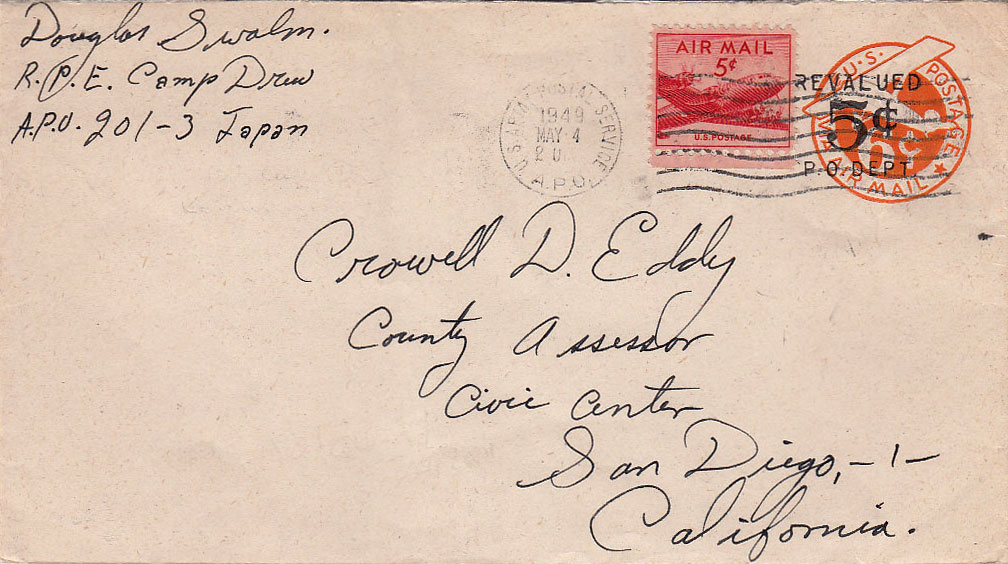 Douglas Swalm.
R.P.E. Camp Drew
A.P.O. 201-3 Japan
AIR MAIL
5¢
U.S. POSTAGE
U.S. ARMY POSTAL SERVICE
1949
MAY 4
A.P.O.
REVALUED
5¢
P.O. DEPT.
U.S. POSTAGE
6¢
VIA AIR MAIL
Crowell D. Eddy
County Assessor
Civic Center
San Diego, -1-
California.